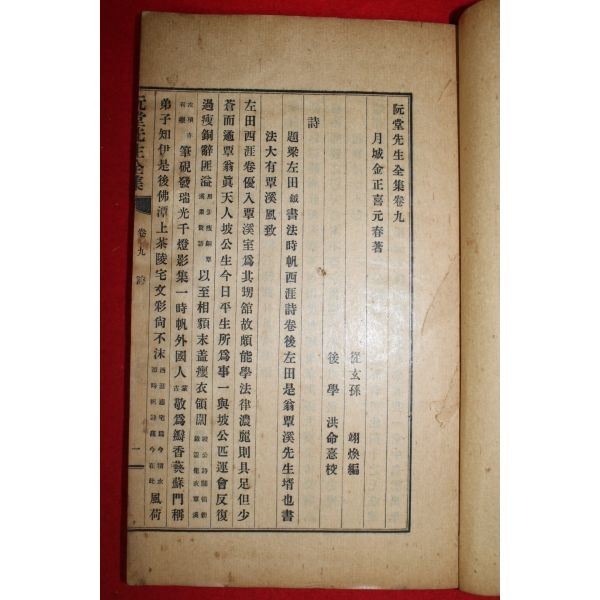 阮堂先生全集卷九
月城金正喜元春著
從玄孫 翊煥編
後學 洪命憙校
詩
題梁左田 鉞 書法時帆西涯詩卷後左田是翁覃溪先生壻也書
法大有覃溪風致
左田西涯卷優入覃溪室爲其甥館故頗能學法律濃麗則具足但少
蒼而遒覃翁眞天人坡公生今日平生所爲事一與坡公匹運會反復
過瘦銅辭匪溢
以至相顙末盖癭衣領闊
筆硯發瑞光千燈影集一時帆外國人 蒙古 敬爲瓣香藝蘇門稱
弟子知伊後佛潭上茶陵宅文彩尙不沬
風荷
阮堂先生全集 卷九 詩 一